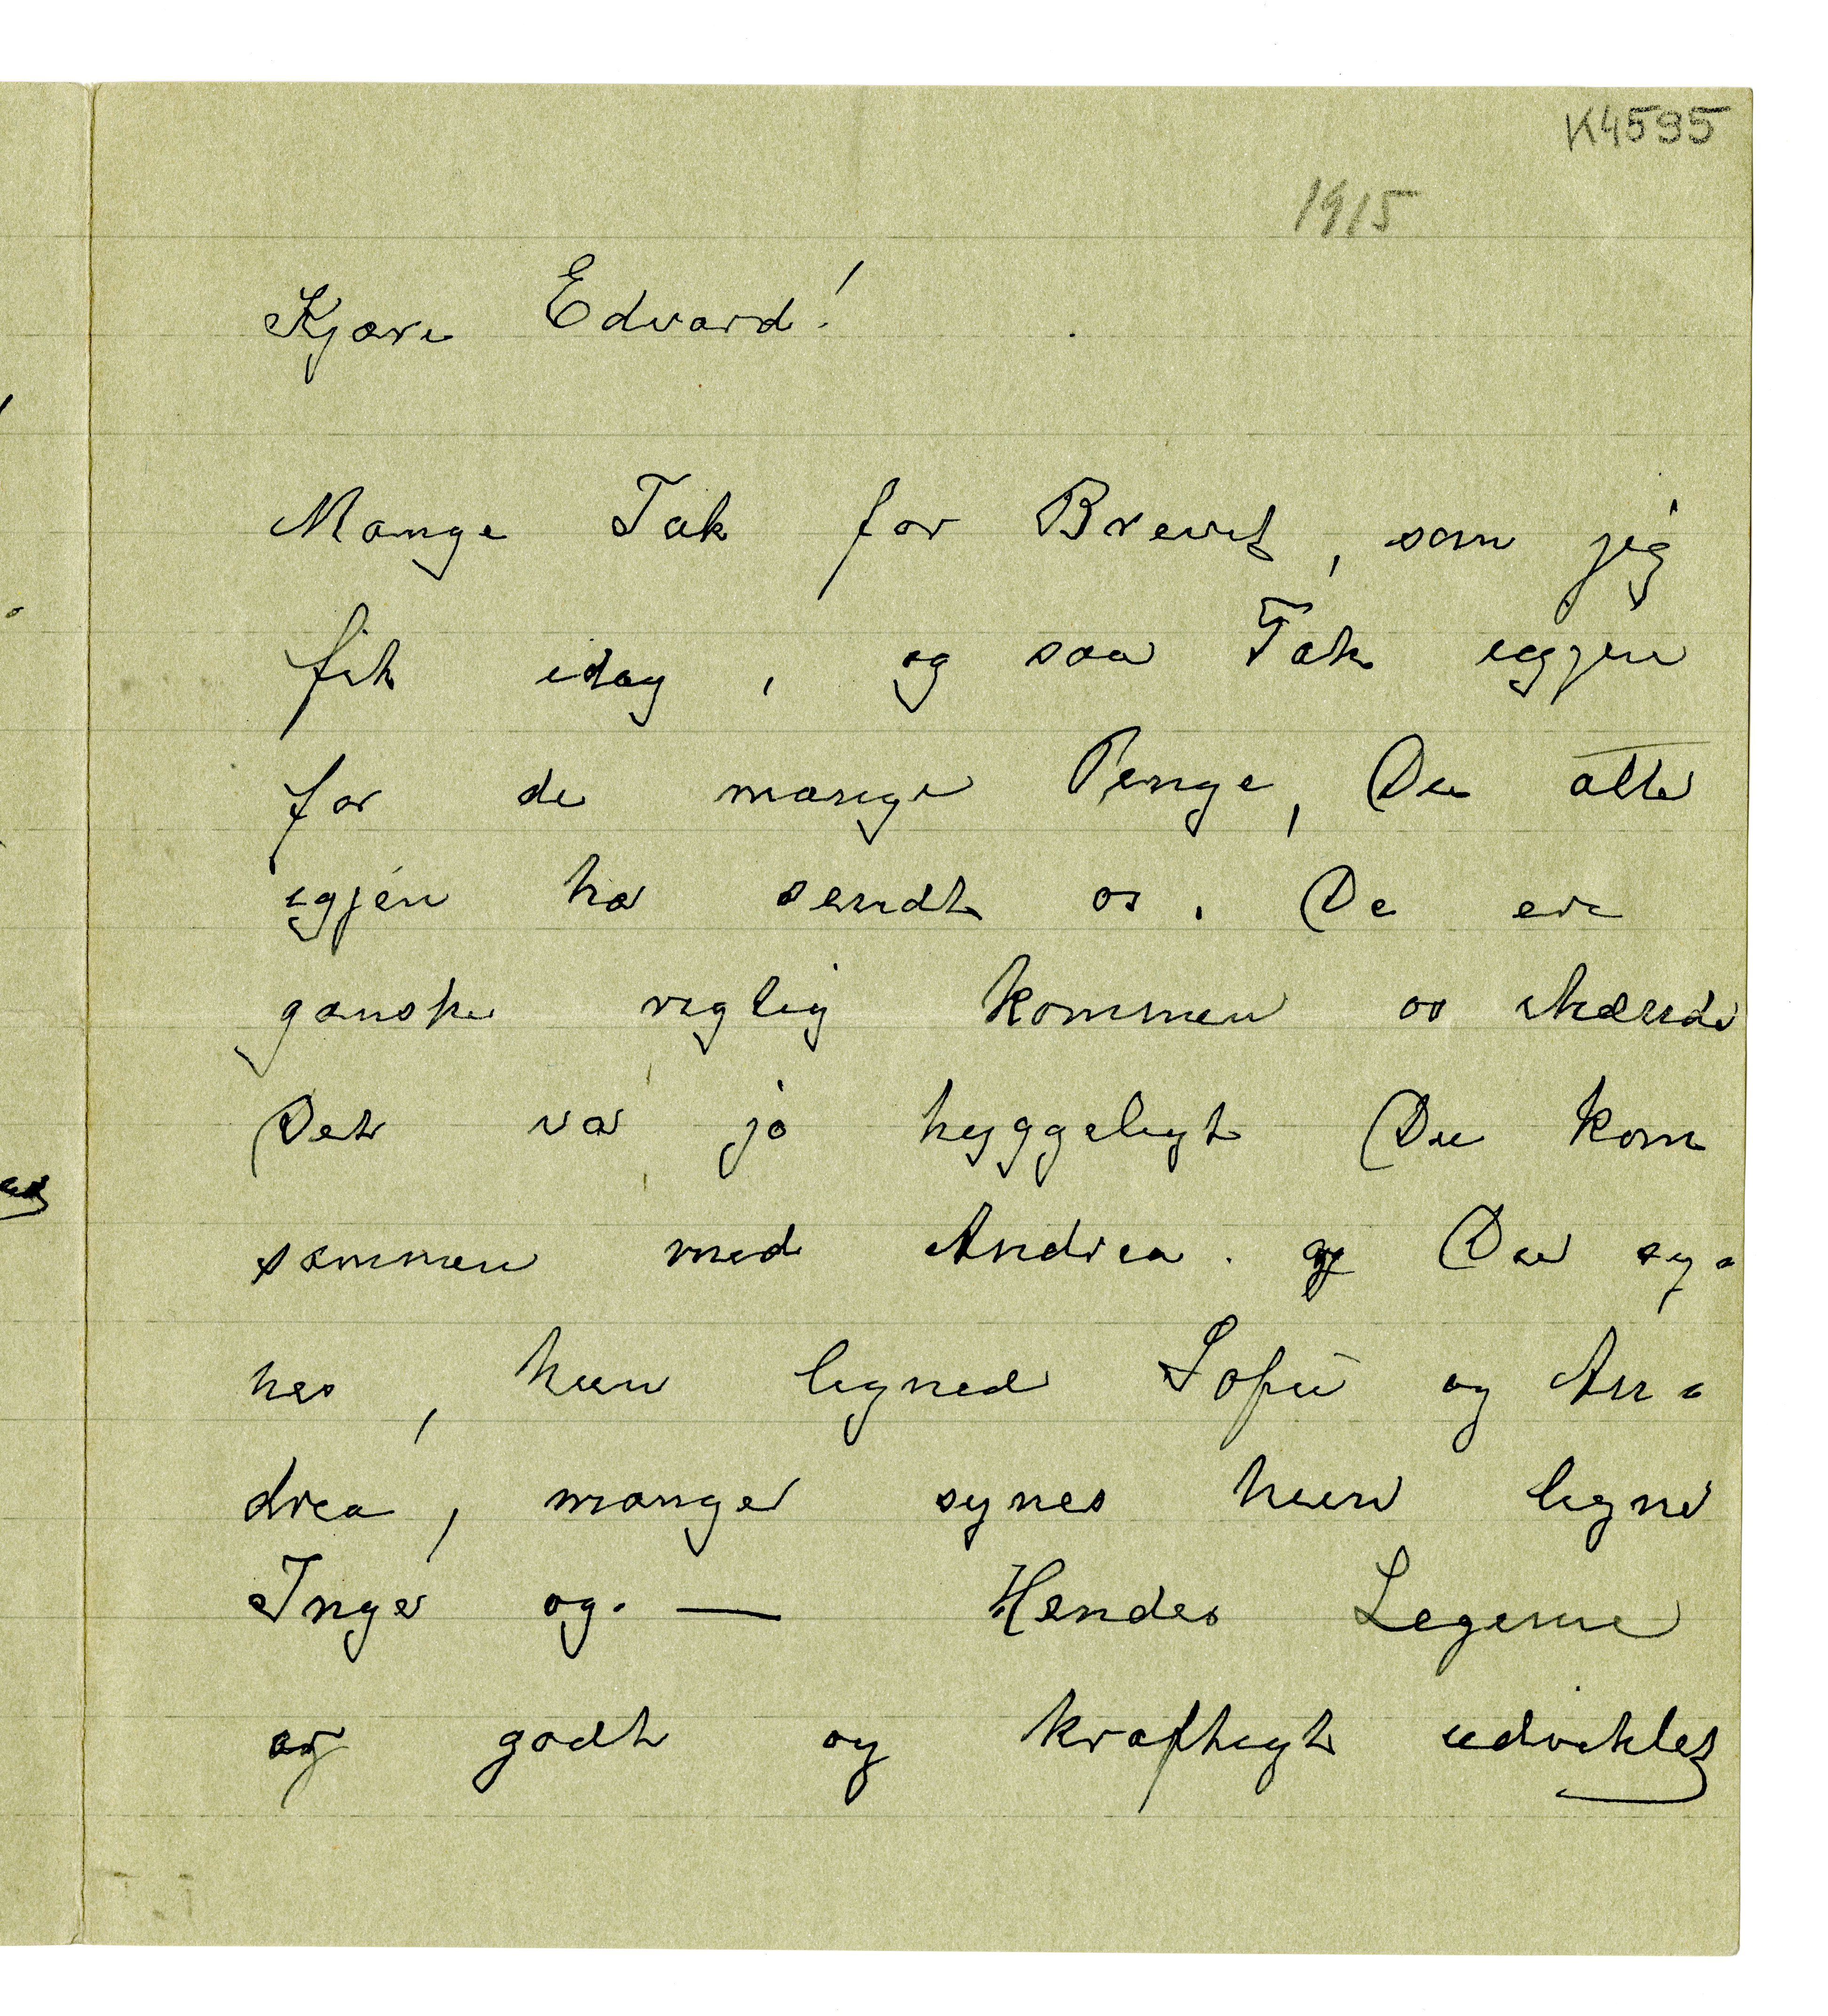 K4595
1915
Kjære Edvard!
Mange Tak for Brevet, som jeg
fik idag, og saa Tak igjen
for de mange Penge, Du atter
igjen har sendt os. De ere
ganske rigtig kommen os ihænde
Det var jo hyggeligt Du kom
sammen med Andrea. og Du sy=
nes, hun ligned Sofie og An=
drea, mange synes hun ligne
Inger og. — Hendes Legeme
er godt og kraftigt udviklet